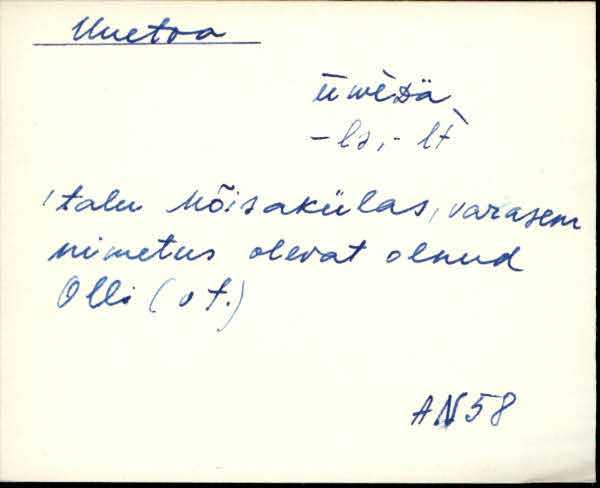 Uuetoa
-ls, - lt
talu Mõisakülas, varasem
nimetus olevat olnud
Olli (vt.)
AN 58